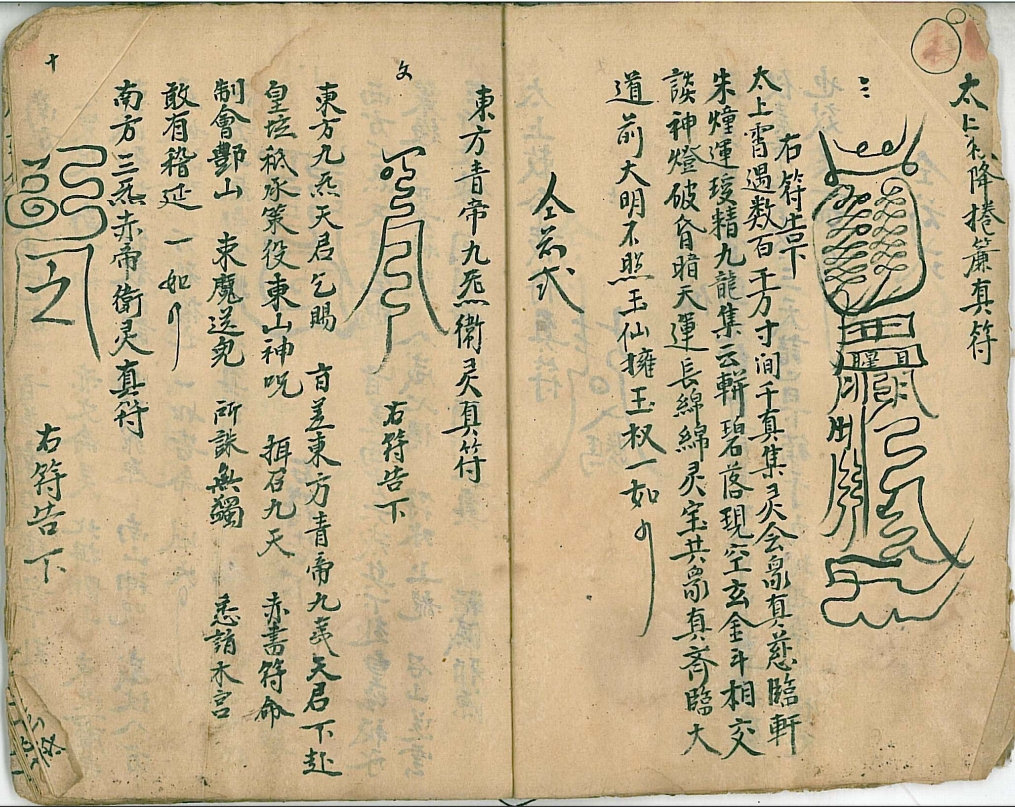 太上礼降捲簾真符
右符告下
太上霄遇数百千万寸间千真集灵会众真慈臨軒
朱煙運瓊精九龍集云軿碧落現空玄金斗相交
談神燈破昏暗天運長綿綿灵宝共众真齊臨大
道前大明不照玉仙擁玉校一如
全前式
東方青帝九炁衛灵真符
右符告下
東方九炁天君乞賜 盲差東方青帝九炁天君下赴
皇坛秪承策役東山神咒 揖召九天 赤書符命
制會酆山 束魔送鬼 所誅無蠲 悉詣木宫
敢有稽延 一如
南方三炁赤帝衛灵真符
右符告下
十